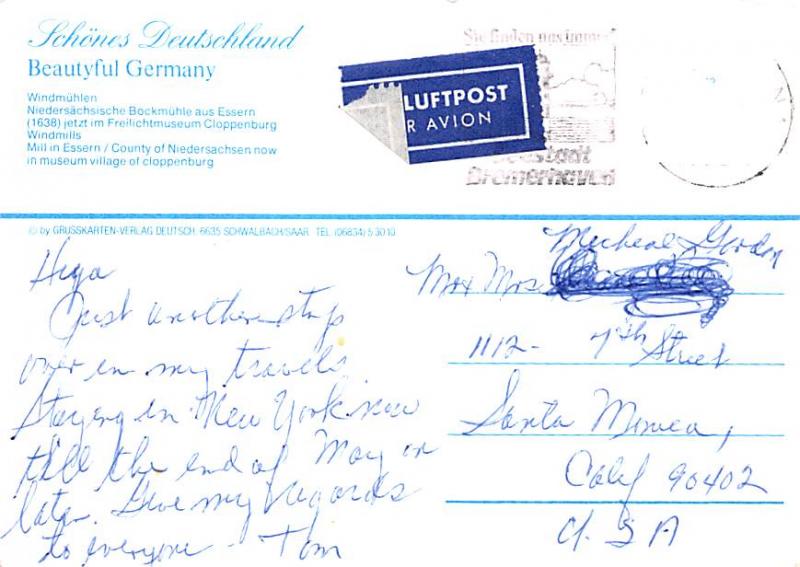 Schönes Deutschland
Beautyful Germany
Windmühlen
Niedersächsische Bockmühle aus Essern
(1638) jetzt im Freilichtmuseum Cloppenburg
Windmills
Mill in Essern / County of Niedersachsen now
in museum village of cloppenburg
Sie finden uns immer
LUFTPOST
R AVION
Seestadt
Bremerhaven
© by GRUSSKARTEN-VERLAG DEUTSCH, 6635 SCHWALBACH/SAAR TEL. (06834) 5 30 10
Hiya
Just another stop
over in my travels
Staying in New York now
till the end of May or
later. Give my regards
to everyone - Tom
Micheal Gordon
Mr + Mrs
1112 - 7th Street
Santa Monica,
Calif 90402
U.S.A